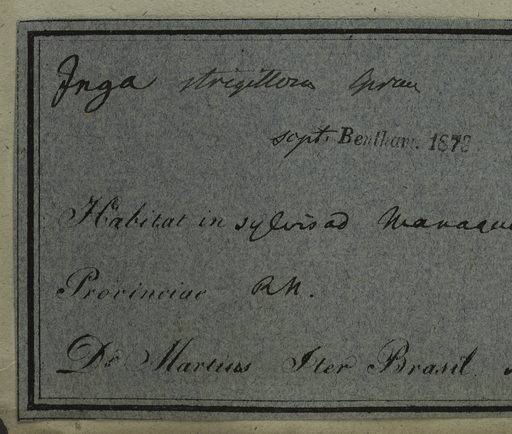 Inga strigillosa Spruce
sept. Bentham. 1873
Habitat in sylvis ad Manaqui
Provinciae R.N.
Dr Martius Iter Brasil.